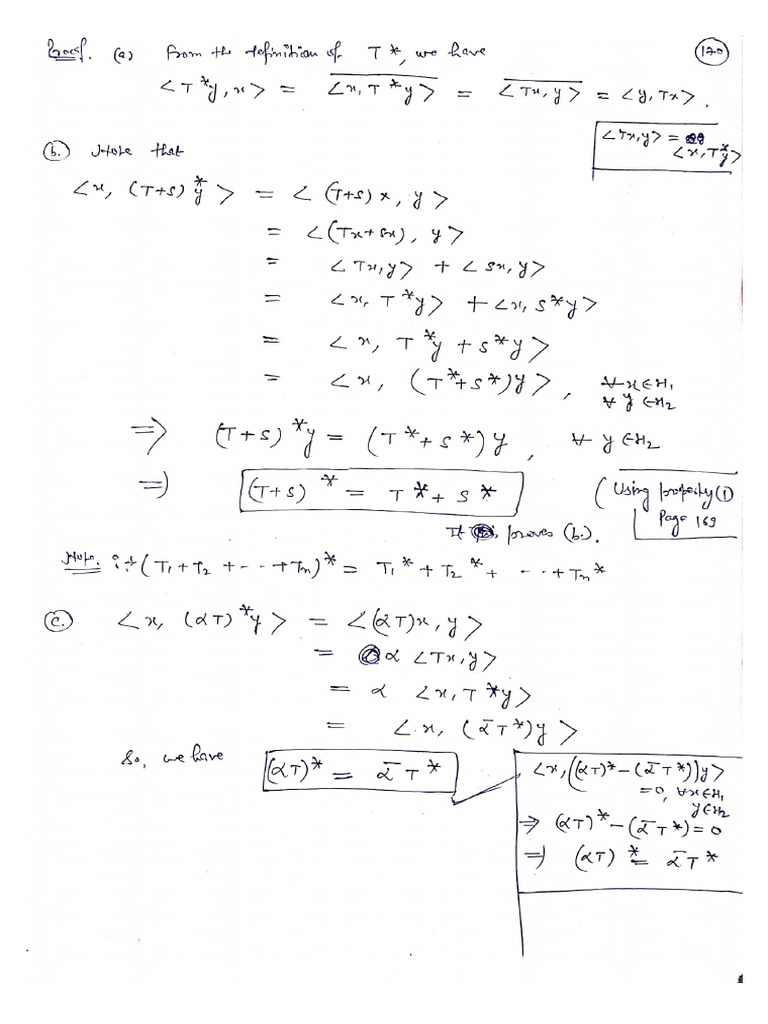 Proof. (a) From the definition of T*, we have
(170)
<T*y, x> = \overline{<x, T*y>} = \overline{<Tx, y>} = <y, Tx>.
<Tx, y> = <x, T*y>
(b.) Note that
<x, (T+S)*y> = <(T+S)x, y>
= <(Tx+Sx), y>
= <Tx, y> + <Sx, y>
= <x, T*y> + <x, S*y>
= <x, T*y + S*y>
= <x, (T*+S*)y>, ∀ x∈H₁
∀ y∈H₂
⇒ (T+S)*y = (T*+S*)y, ∀ y∈H₂
⇒ (T+S)* = T*+S*
(Using property (1)
Page 169
It proves (b.).
Note: (T₁+T₂+--+Tₙ)* = T₁*+T₂*+ --+Tₙ*
(c.) <x, (αT)*y> = <(αT)x, y>
= α <Tx, y>
= α <x, T*y>
= <x, (ᾱT*)y>
So, we have (αT)* = ᾱT*
<x, ((αT)*-(ᾱT*))y>
=0, ∀x∈H₁
y∈H₂
⇒ (αT)*-(ᾱT*)=0
⇒ (αT)* = ᾱT*